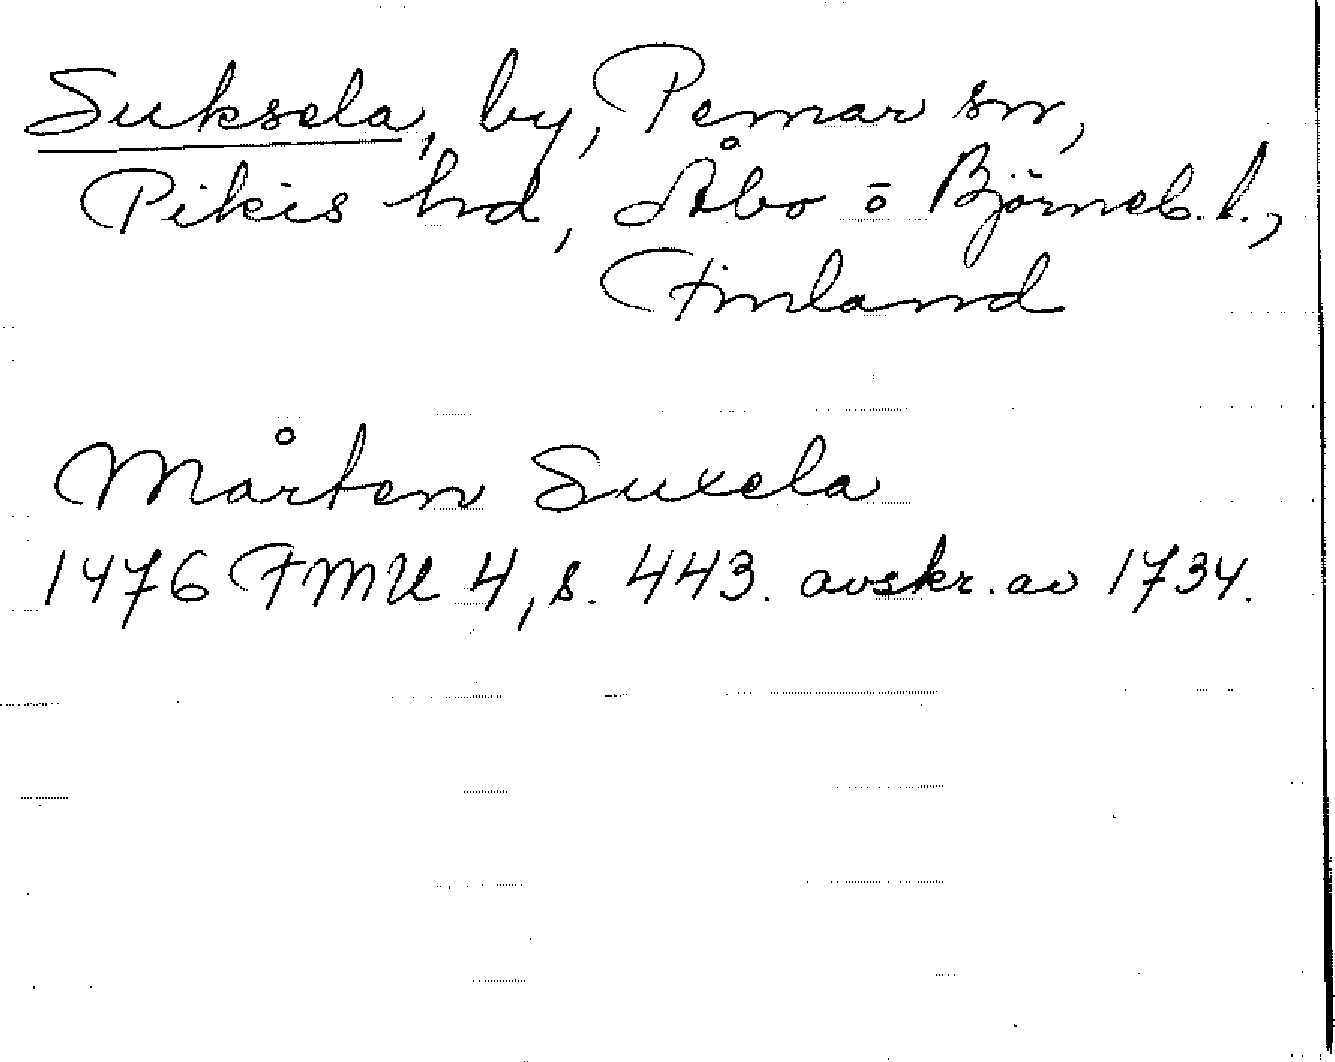 Suksela, by, Pemar sn,
Pikis hd, Åbo o Björneb. l.,
Finland
Mårten Suxela
1476 FMU 4, s. 443. avskr. av 1734.